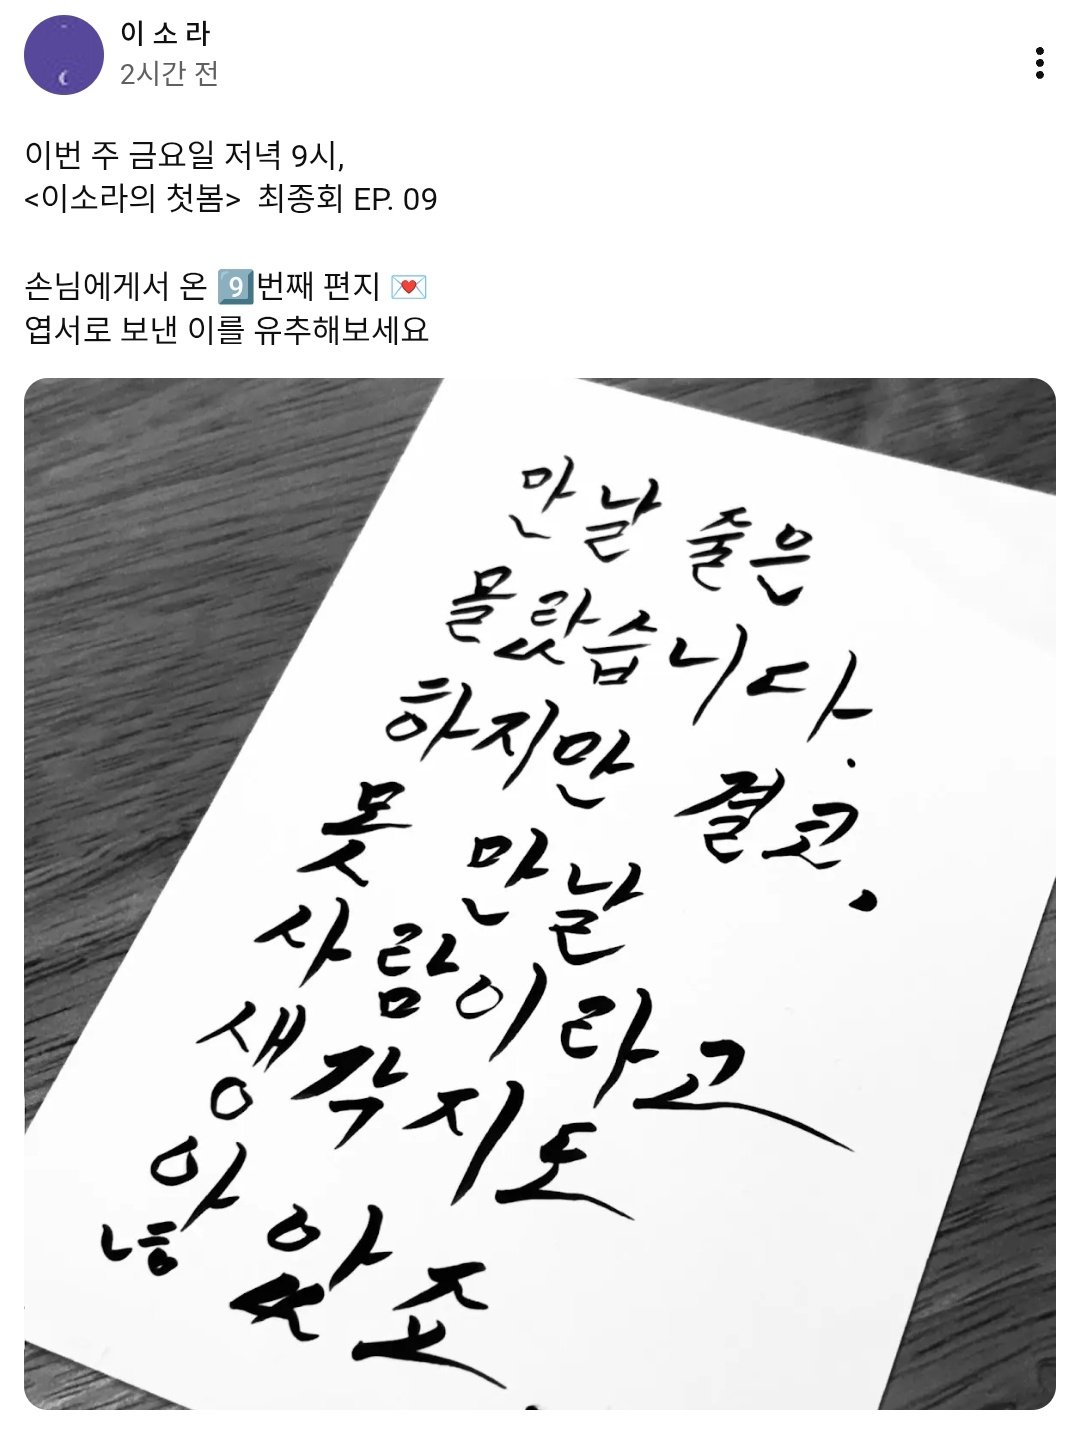 이 소 라
2시간 전
이번 주 금요일 저녁 9시,
<이소라의 첫봄> 최종회 EP. 09
손님에게서 온 9️⃣번째 편지 💌
엽서로 보낸 이를 유추해보세요
만날 줄은
몰랐습니다.
하지만 결코,
못 만날
사람이라고
생각지도
않았죠.